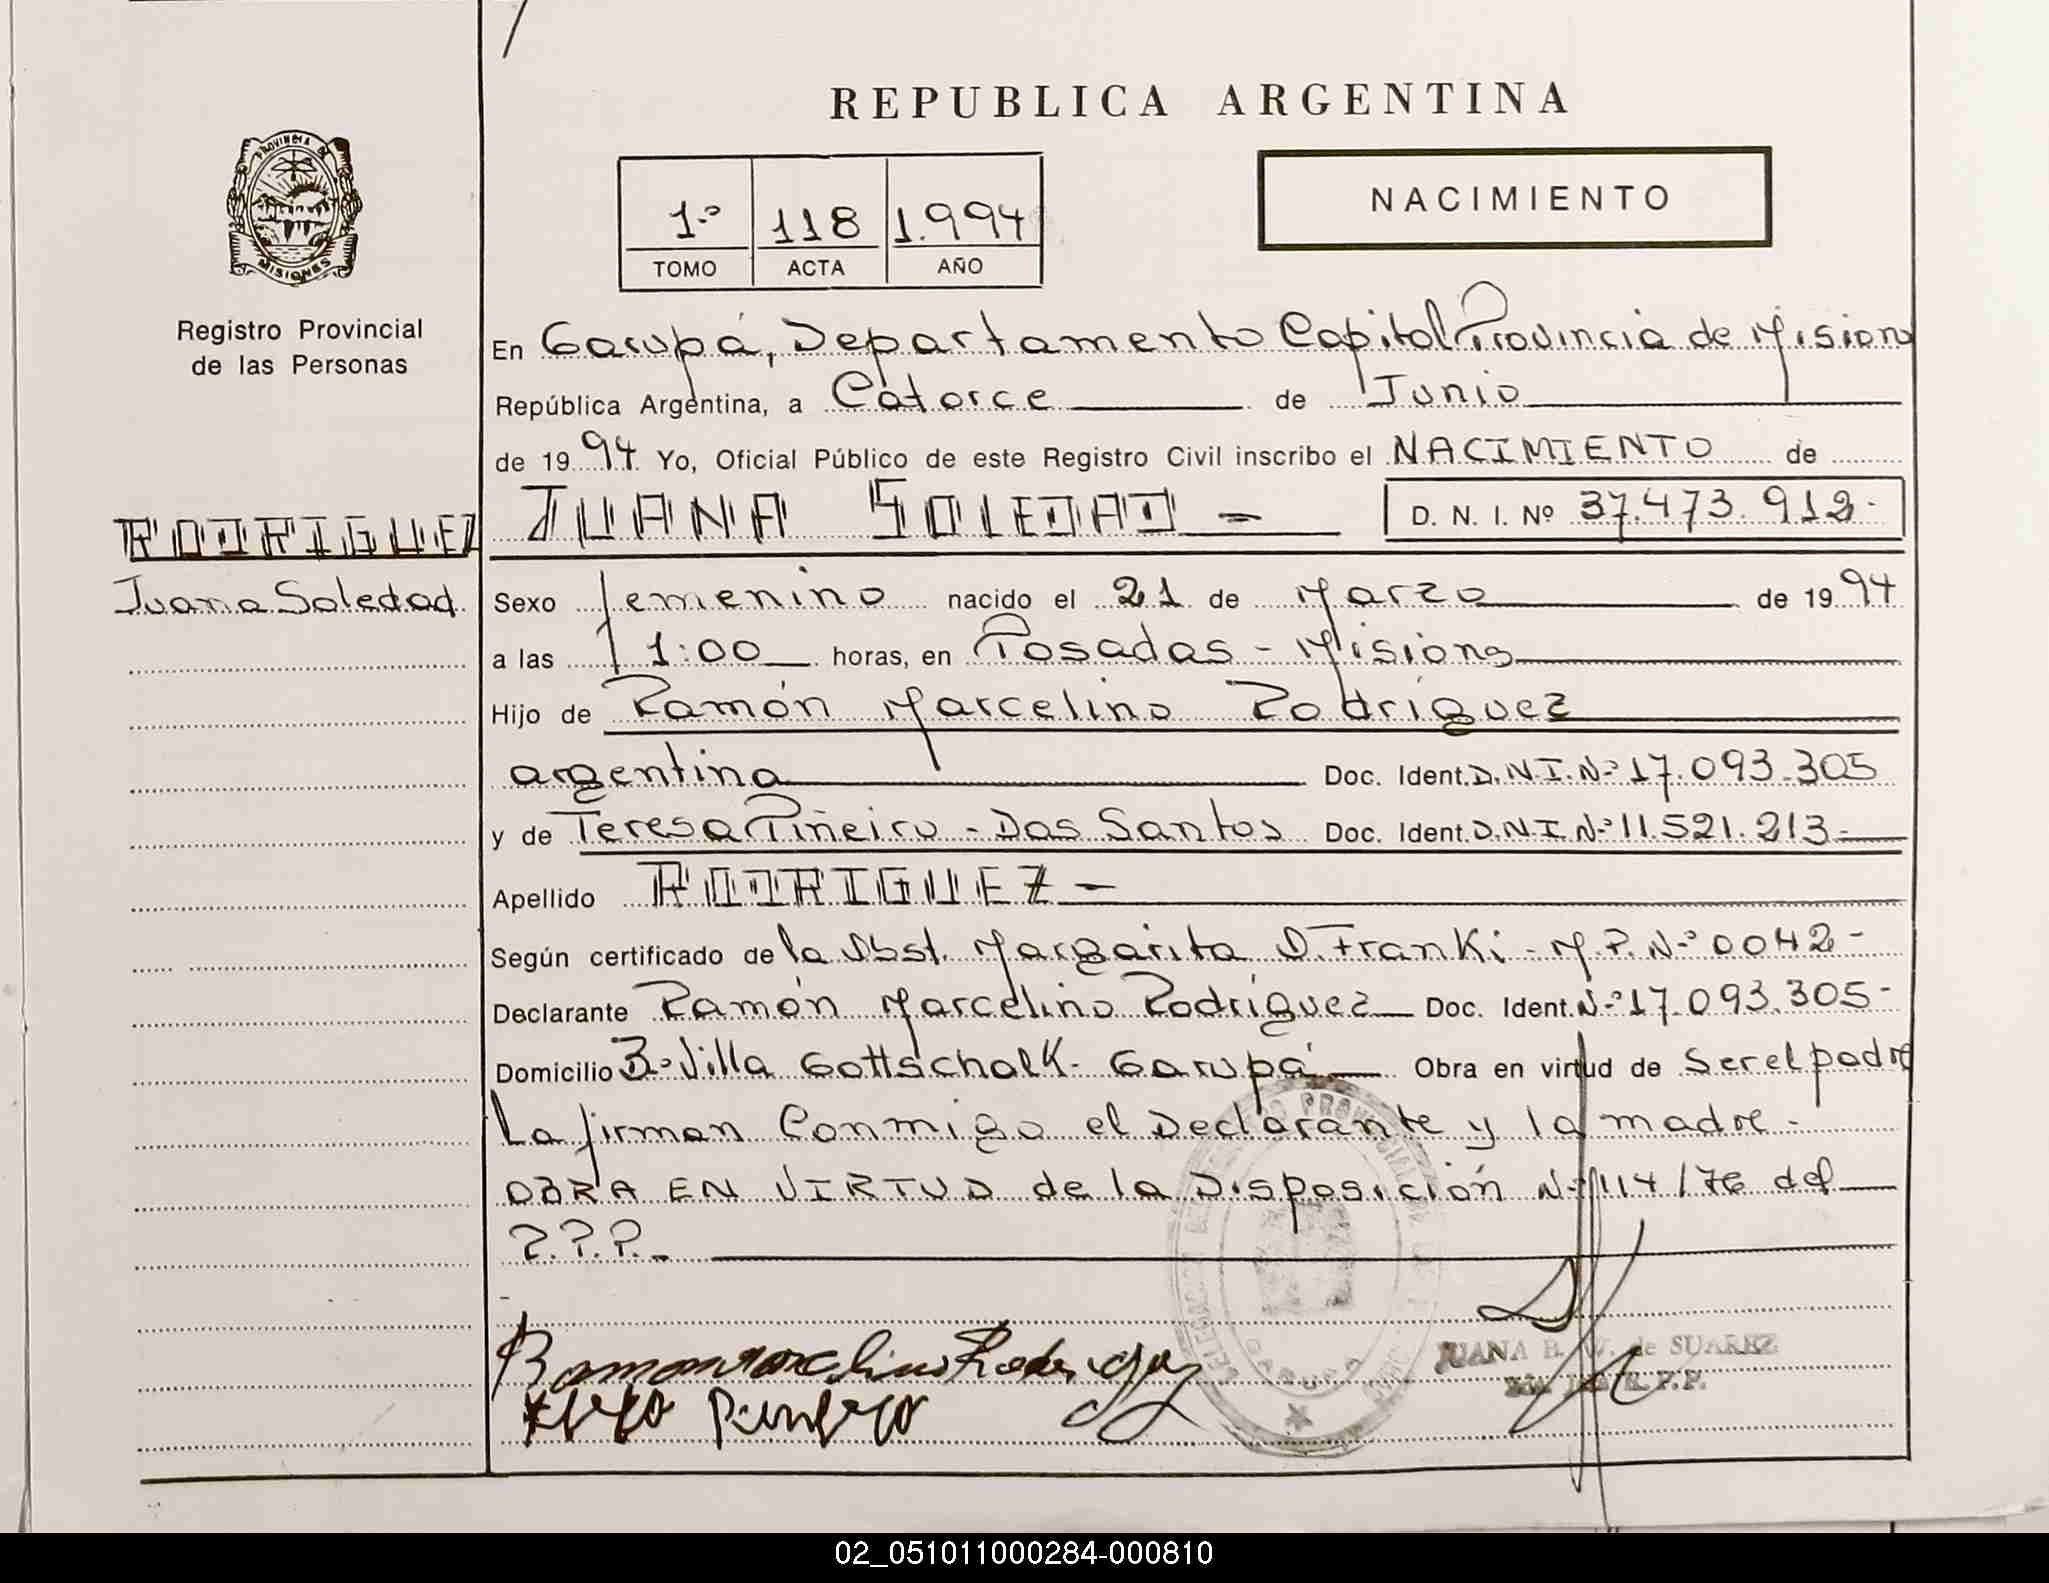 REPUBLICA ARGENTINA
PROVINCIA DE
MISIONES
Registro Provincial
de las Personas
1.º 118 1.994
TOMO ACTA AÑO
NACIMIENTO
En Garupá, Departamento Capital Provincia de Misiones
República Argentina, a Catorce de Junio
de 1994 Yo, Oficial Público de este Registro Civil inscribo el NACIMIENTO de
RODRIGUEZ
Juana Soledad
JUANA SOLEDAD - D. N. I. Nº 37.473.912-
Sexo femenino nacido el 21 de Marzo de 1994
a las 11:00 horas, en Posadas - Misiones
Hijo de Ramón Marcelino Rodríguez
argentina Doc. Ident. D.N.I.Nº 17.093.305
y de Teresa Piñeiro - Dos Santos Doc. Ident. D.N.I.Nº 11.521.213-
Apellido RODRIGUEZ -
Según certificado de la Obst. Margarita D. Franki - M.P.Nº 0042-
Declarante Ramón Marcelino Rodríguez Doc. Ident. Nº 17.093.305-
Domicilio Bº Villa Gottschalk - Garupá Obra en virtud de Ser el padre
La firman Conmigo el Declarante y la madre -
OBRA EN VIRTUD de la Disposición Nº 114/76 del
R.P.P.
Ramon Marcelino Rodriguez
JUANA B. W. de SUAREZ
GARUPA
02_051011000284-000810